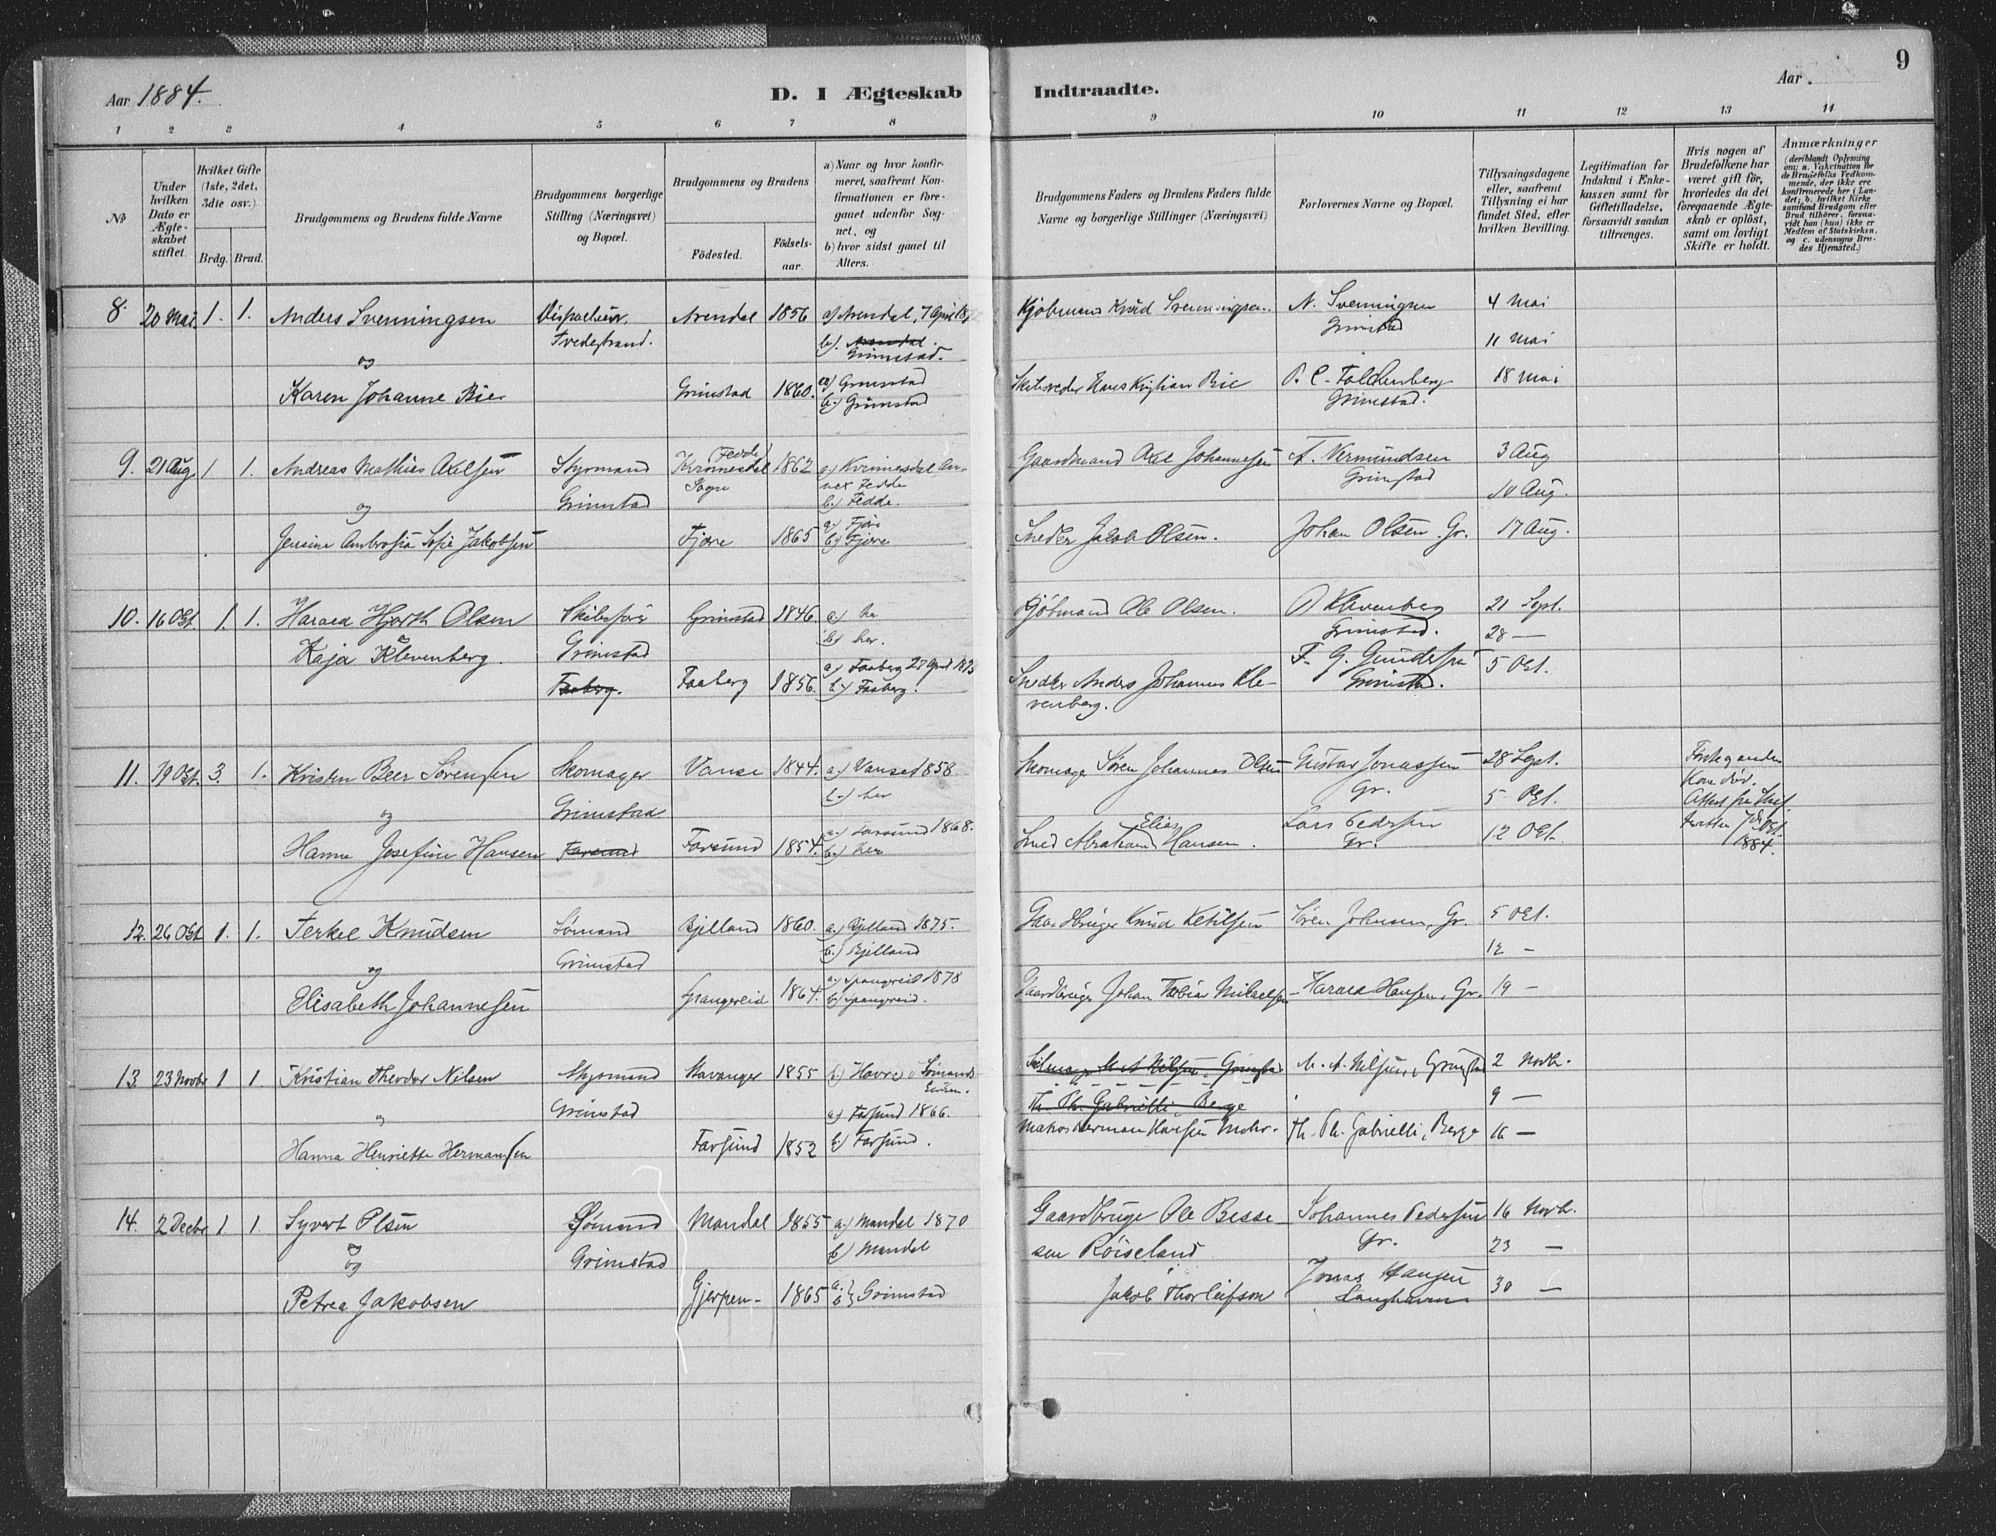 Aar 1884.
D. I Ægteskab Indtraadte.
Aar .
9
1 2 3 4 5 6 7 8 9 10 11 12 13 14
№
Under hvilken Dato er Ægteskabet stiftet.
Hvilket Gifte (1ste, 2det, 3dte osv.)
Brdg. Brud.
Brudgommens og Brudens fulde Navne
Brudgommens borgerlige Stilling (Næringsvei) og Bopæl.
Brudgommens og Brudens
Fødested.
Fødselsaar
a) Naar og hvor konfirmeret, saafremt Konfirmationen er foregaaet udenfor Sognet, og
b) hvor sidst gaaet til Alters.
Brudgommens Faders og Brudens Faders fulde Navne og borgerlige Stillinger (Næringsvei)
Forlovernes Navne og Bopæl.
Tillysningsdagene eller, saafremt Tillysning ei har fundet Sted, efter hvilken Bevilling.
Legitimation for Indskud i Enkekassen samt for Giftetilladelse, forsaavidt saadan tiltrænges.
Hvis nogen af Brudefolkene har været gift før, hvorledes da det foregaaende Ægteskab er opløst, samt om lovligt Skifte er holdt.
Anmærkninger
(deriblandt Oplysning om: a. Vakcination for de Brudefolks Vedkommende, der ikke ere konfirmerede her i Landet; b. hvilket Kirkesamfund Brudgom eller Brud tilhører, forsaavidt han (hun) ikke er Medlem af Statskirken, og c. udensogns Brudes Hjemsted.)
8. 20 Mai 1. 1. Anders Svenningsen Arendal 1856 a) Arendal, 7 April Kjøbmand Knud Svenningsen. N. Svenningsen 4 Mai
Tvedestrand. b). Arendal. Grimstad. Grimstad 11 Mai
og
Karen Johanne Bie Grimstad 1860. a) Grimstad b.) Grimstad Hans Kristian Bie P. C. Faldenberg Grimstad. 18 Mai
9. 21 Aug 1. 1. Andreas Mathias Axelsen Styrmand Fedde Kvinesdal Sogn 1862 a) Kvinesdal Annex Fedde Gaardmand Axel Johannesen A. Vermundsen 3 Aug
og Grimstad b.) Fedde. Grimstad 10 Aug.
Jensine Ambrosia Sofie Jakobsen Fjære 1865 a) Fjære b) Fjære Snedker Jacob Olsen. Johan Olsen. Gr. 17 Aug.
10. 16 Okt. 1. 1. Harald Hjorth Olsen Skibsfører Grimstad 1846. a) her Kjøbmand Ole Olsen. O Klevenberg 21 Sept.
Grimstad b) her. Grimstad. 28 —
Kaja Klevenberg. Faaberg. Faaberg 1856. a) Faaberg 27 April 1873 b.) Faaberg. Snedker Anders Johannes Klevenberg. F. G. Gundersen Grimstad. 5 Okt.
11. 19 Okt. 3. 1. Kristen Beer Sørensen Skomager Vanse 1844. a.) Vanse 1858. Skomager Søren Johannes Olsen Gustav Jonassen 28 Sept. Foregaaende
og Grimstad b.) her Gr. 5 Okt. Kone død.
Hanna Josefine Hansen Farsund Farsund 1854. a.) Farsund 1868. b.) her Smed Abraham Elias Hansen. Lars Pedersen Gr. 12 Okt. Attest fra Skifteretten 7de Okt 1884.
12. 26 Okt 1. 1. Terkel Knudsen Sømand Bjelland 1860. a.) Bjelland 1875. Gaardbruger Knud Ketilsen Søren Johnsen, Gr. 5 Okt.
og Grimstad b.) Bjelland 12 —
Elisabeth Johannesen Spangereid 1864. a.) Spangereid 1878 b) Spangereid. Gaardbruger Johan Tobias Mikaelsen Harald Hansen, Gr. 19 —
13 23 Novbr 1 1 Kristian Theodor Nilsen Styrmand Stavanger 1855 b) Havre i Sømands M. A. Nilsen, Grimstad 2 Novb.
" Grimstad a) Farsund 1866. Th. Ph. Gabrielli, Berge 9 —
Hanna Henriette Hermansen Farsund 1852 b) Farsund. Herman Hansen Th. Ph. Gabrielli, Berge 16 —
14. 2 Decbr 1. 1. Syvert Olsen Sømand Mandal 1855 a) Mandal 1870 Gaardbruger Ole Bessesen Røiseland Johannes Pedersen 16 Novb.
og Grimstad b) Mandal Gr. 23 —
Petrea Jakobsen Gjerpen 1865 a. b } Grimstad Jakob Thorleifson Jonas Hansen 30 —